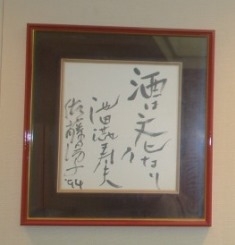 酒は文化なり
池田満寿夫
佐藤陽子
'94